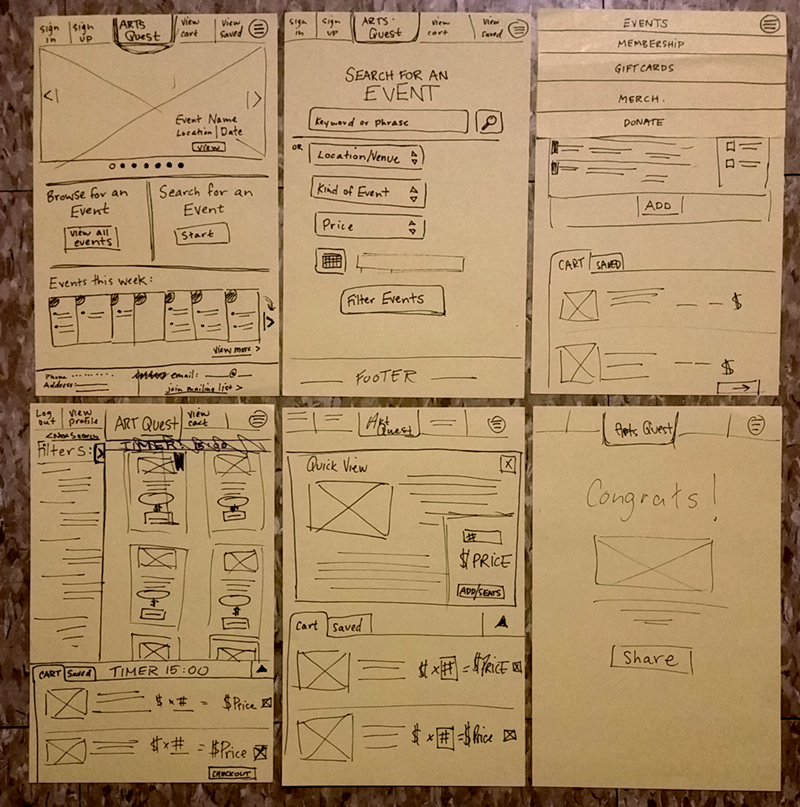 sign in
sign up
ARTS Quest
View cart
View Saved
Event Name
Location | Date
View
Browse for an Event
View all events
Search for an Event
Start
Events this week:
View more >
Phone
Address:
email: @
join mailing list >
sign in
sign up
ARTS Quest
View cart
View Saved
SEARCH FOR AN
EVENT
Keyword or phrase
OR
Location/Venue
Kind of Event
Price
Filter Events
FOOTER
EVENTS
MEMBERSHIP
GIFTCARDS
MERCH.
DONATE
ADD
CART
SAVED
$
$
Log out
View profile
ART Quest
View cart
< New Search
Filters:
TIMER 15:00
$
$
$
$
CART
Saved
TIMER 15:00
$ x # = $Price
$ x # = $Price
CHECKOUT
Art Quest
Quick View
X
#
$ PRICE
ADD/SEATS
Cart
Saved
$ x # = $PRICE
$ x # = $Price
Arts Quest
Congrats!
Share